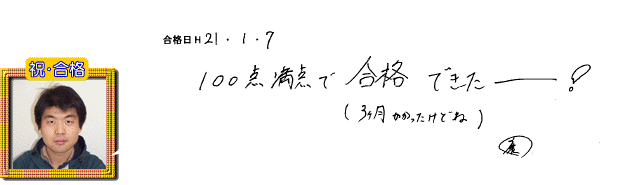 合格日H 21・1・7
祝・合格
100点満点で 合格 できたー!
(3ヶ月かかったけどね)